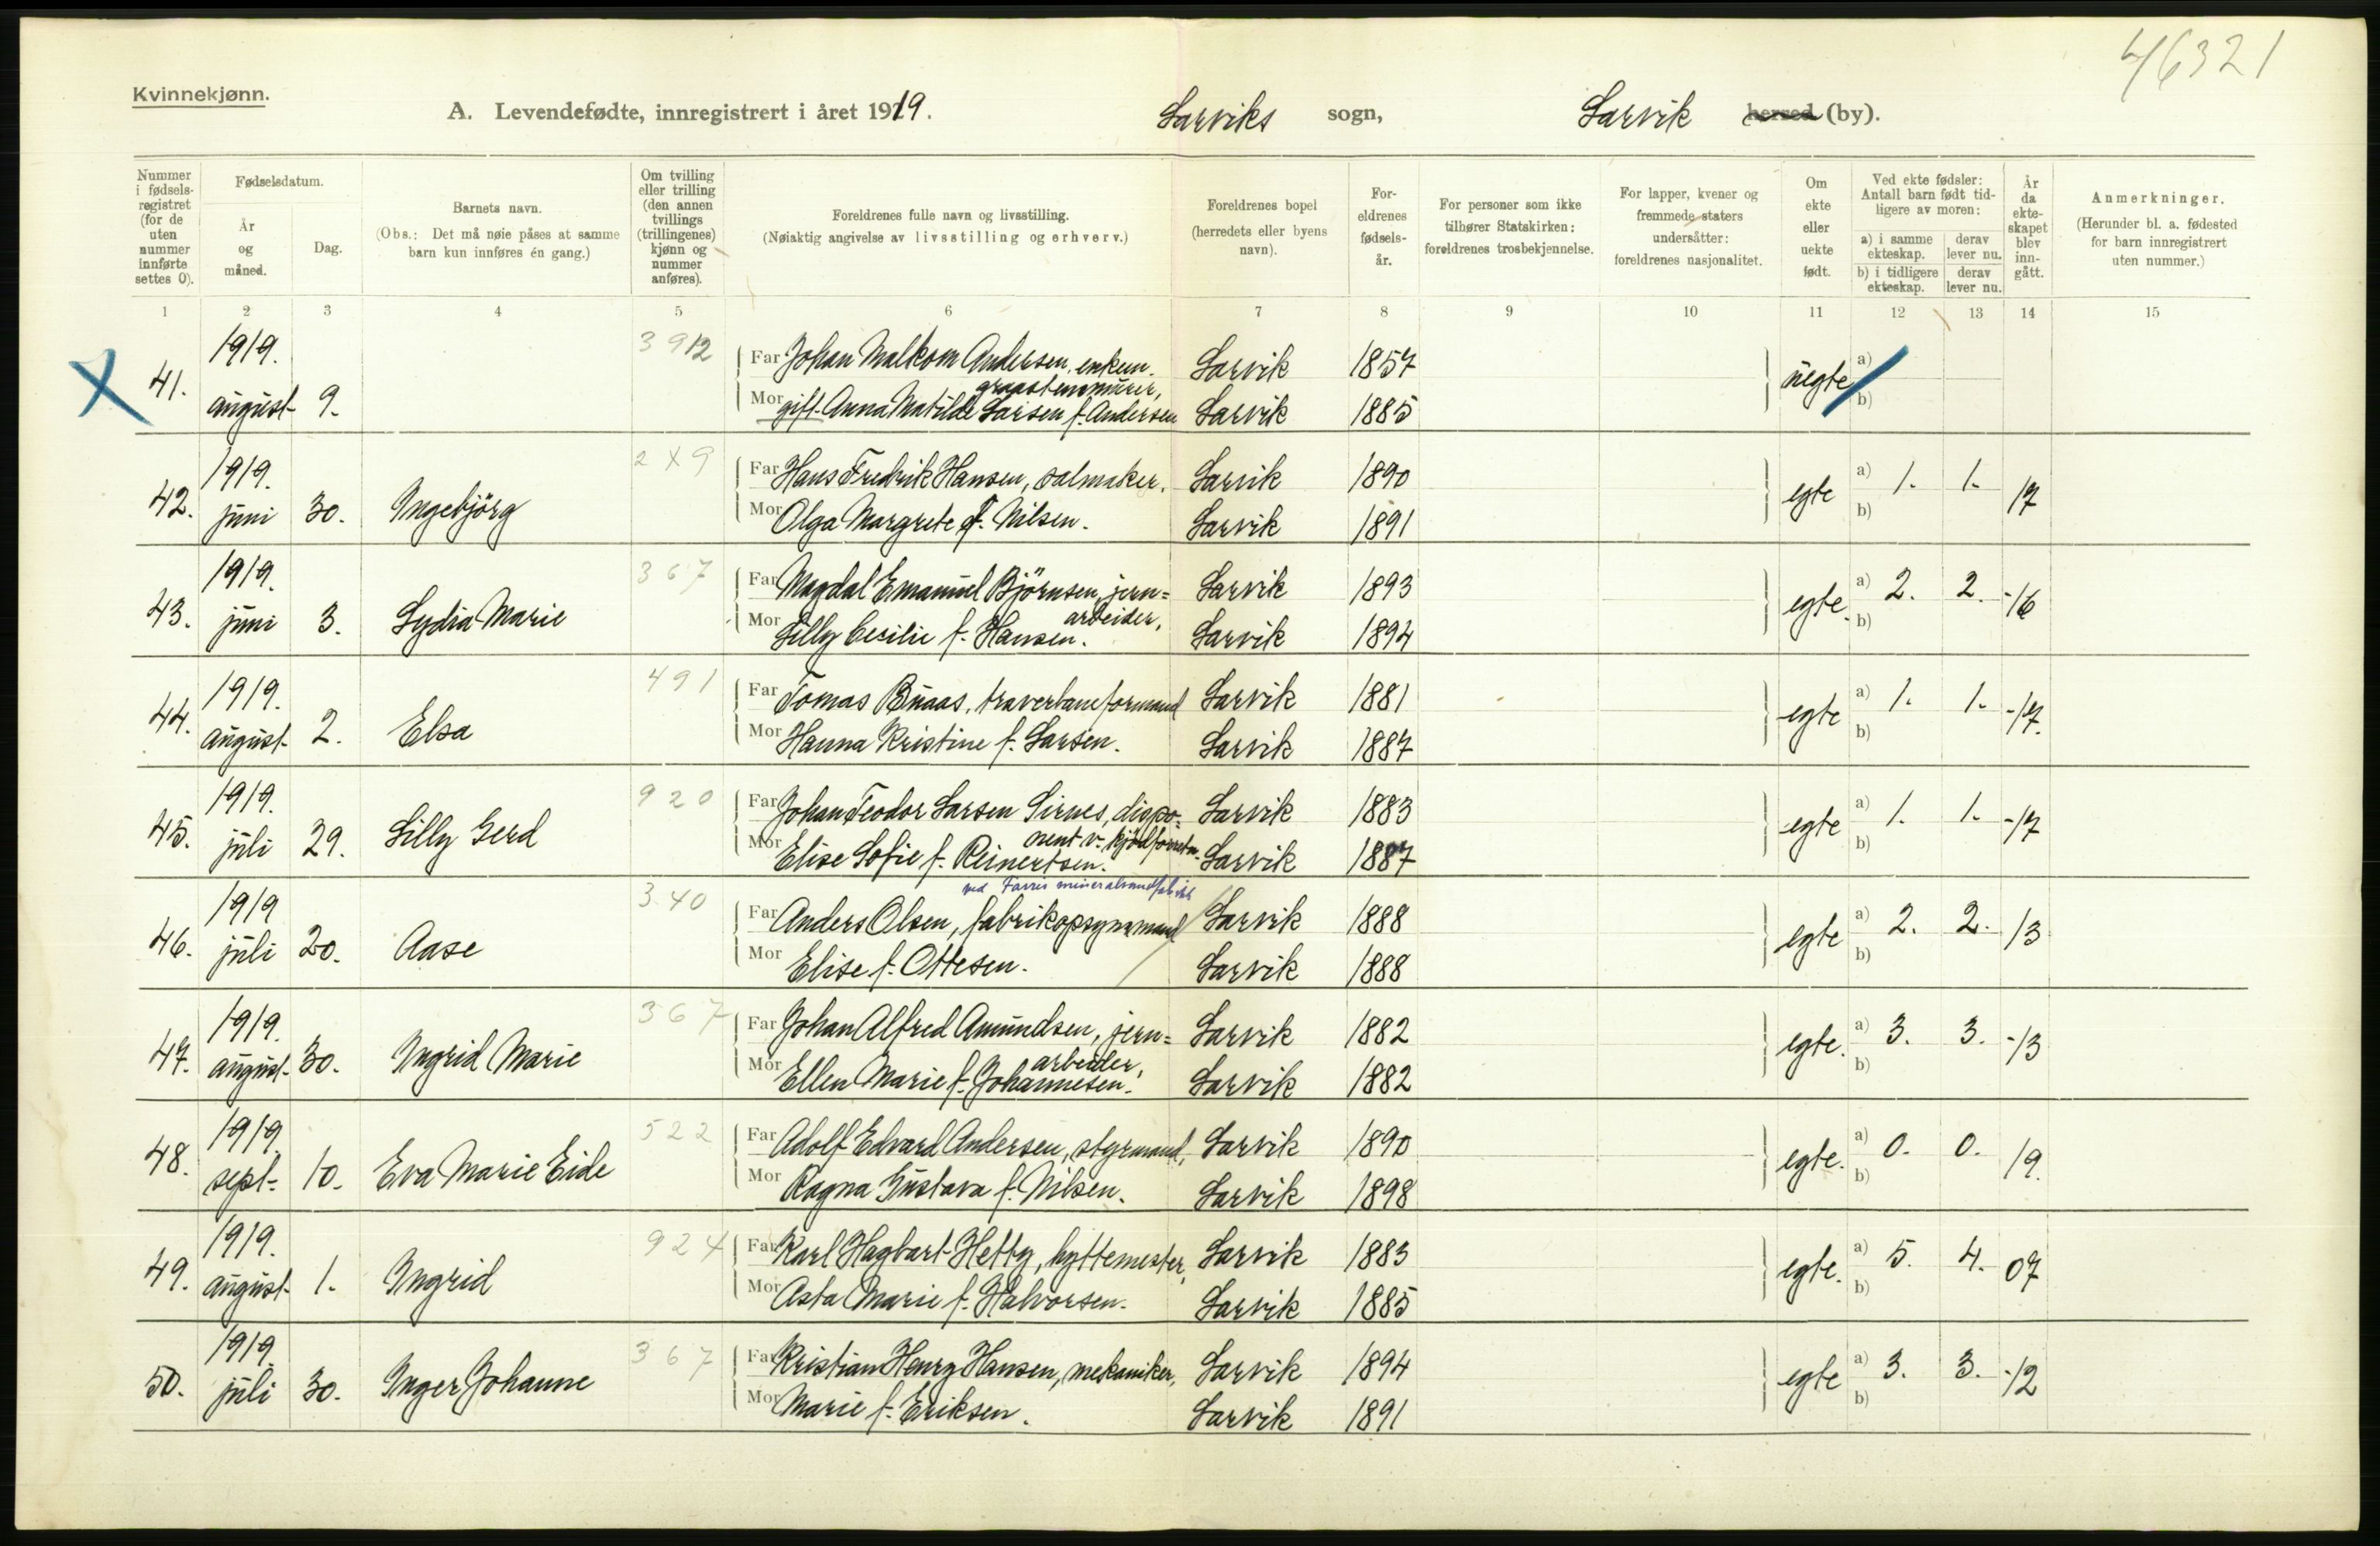 46321
Kvinnekjønn.
A. Levendefødte, innregistrert i året 1919. Larviks sogn, Larvik herred (by).
Nummer i fødsels-registret (for de uten nummer innførte settes 0).
Fødselsdatum.
År og måned.
Dag.
Barnets navn.
(Obs.: Det må nøie påses at samme barn kun innføres én gang.)
Om tvilling eller trilling (den annen tvillings (trillingenes) kjønn og nummer anføres).
Foreldrenes fulle navn og livsstilling.
(Nøiaktig angivelse av livsstilling og erhverv.)
Foreldrenes bopel (herredets eller byens navn).
For-eldrenes fødsels-år.
For personer som ikke tilhører Statskirken: foreldrenes trosbekjennelse.
For lapper, kvener og fremmede staters undersåtter: foreldrenes nasjonalitet.
Om ekte eller uekte født.
Ved ekte fødsler: Antall barn født tid-ligere av moren:
a) i samme ekteskap. derav lever nu.
b) i tidligere ekteskap. derav lever nu.
År da ekte-skapet blev inn-gått.
Anmerkninger.
(Herunder bl. a. fødested for barn innregistrert uten nummer.)
1 2 3 4 5 6 7 8 9 10 11 12 13 14 15
41. 1919. august 9. 3912 Far Johan Malkom Andersen, enkem. graastensmurer, Larvik 1857 uegte a) b)
Mor gift Anna Matilde Larsen f. Andersen Larvik 1885
42. 1919. juni 30. Ingebjörg 2 X 9 Far Hans Fredrik Hansen, salmaker. Larvik 1890 egte a) 1. 1. 17 b)
Mor Olga Margrete f. Nilsen. Larvik 1891
43. 1919. juni 3. Lydia Marie 367 Far Magdal Emanuel Björnsen, jern=arbeider, Larvik 1893 egte. a) 2. 2. -16 b)
Mor Lilly Cecilie f. Hansen. Larvik 1894
44. 1919. august 2. Elsa 491 Far Tomas Buaas, traverbaneformand Larvik 1881 egte a) 1. 1. -17. b)
Mor Hanna Kristine f. Larsen. Larvik 1887
45. 1919. juli 29. Lilly Gerd 920 Far Johan Teodor Larsen Sirnes, dispo=nent v. kjödforretn. Larvik 1883 egte a) 1. 1. -17 b)
Mor Elise Sofie f. Reinertsen. Larvik 1887
ved Farris mineralvandfabrik
46. 1919 juli 20. Aase 340 Far Anders Olsen, fabrikopsynsmand Larvik 1888 egte a) 2. 2. 13 b)
Mor Elise f. Ottesen. Larvik 1888
47. 1919. august 30. Ingrid Marie 367 Far Johan Alfred Amundsen, jern=arbeider, Larvik 1882 egte. a) 3. 3. -13 b)
Mor Ellen Marie f. Johannesen. Larvik 1882
48. 1919. sept. 10. Eva Marie Eide 522 Far Adolf Edvard Andersen, styrmand, Larvik 1890 egte. a) 0. 0. 19. b)
Mor Ragna Gustava f. Nilsen. Larvik 1898
49. 1919. august 1. Ingrid 924 Far Karl Hagbart Hetty, hyttemester, Larvik 1883 egte. a) 5. 4. 07 b)
Mor Asta Marie f. Halvorsen. Larvik 1885
50. 1919 juli 30. Inger Johanne 367 Far Kristian Henry Hansen, mekaniker, Larvik 1894 egte a) 3. 3. -12 b)
Mor Marie f. Eriksen. Larvik 1891